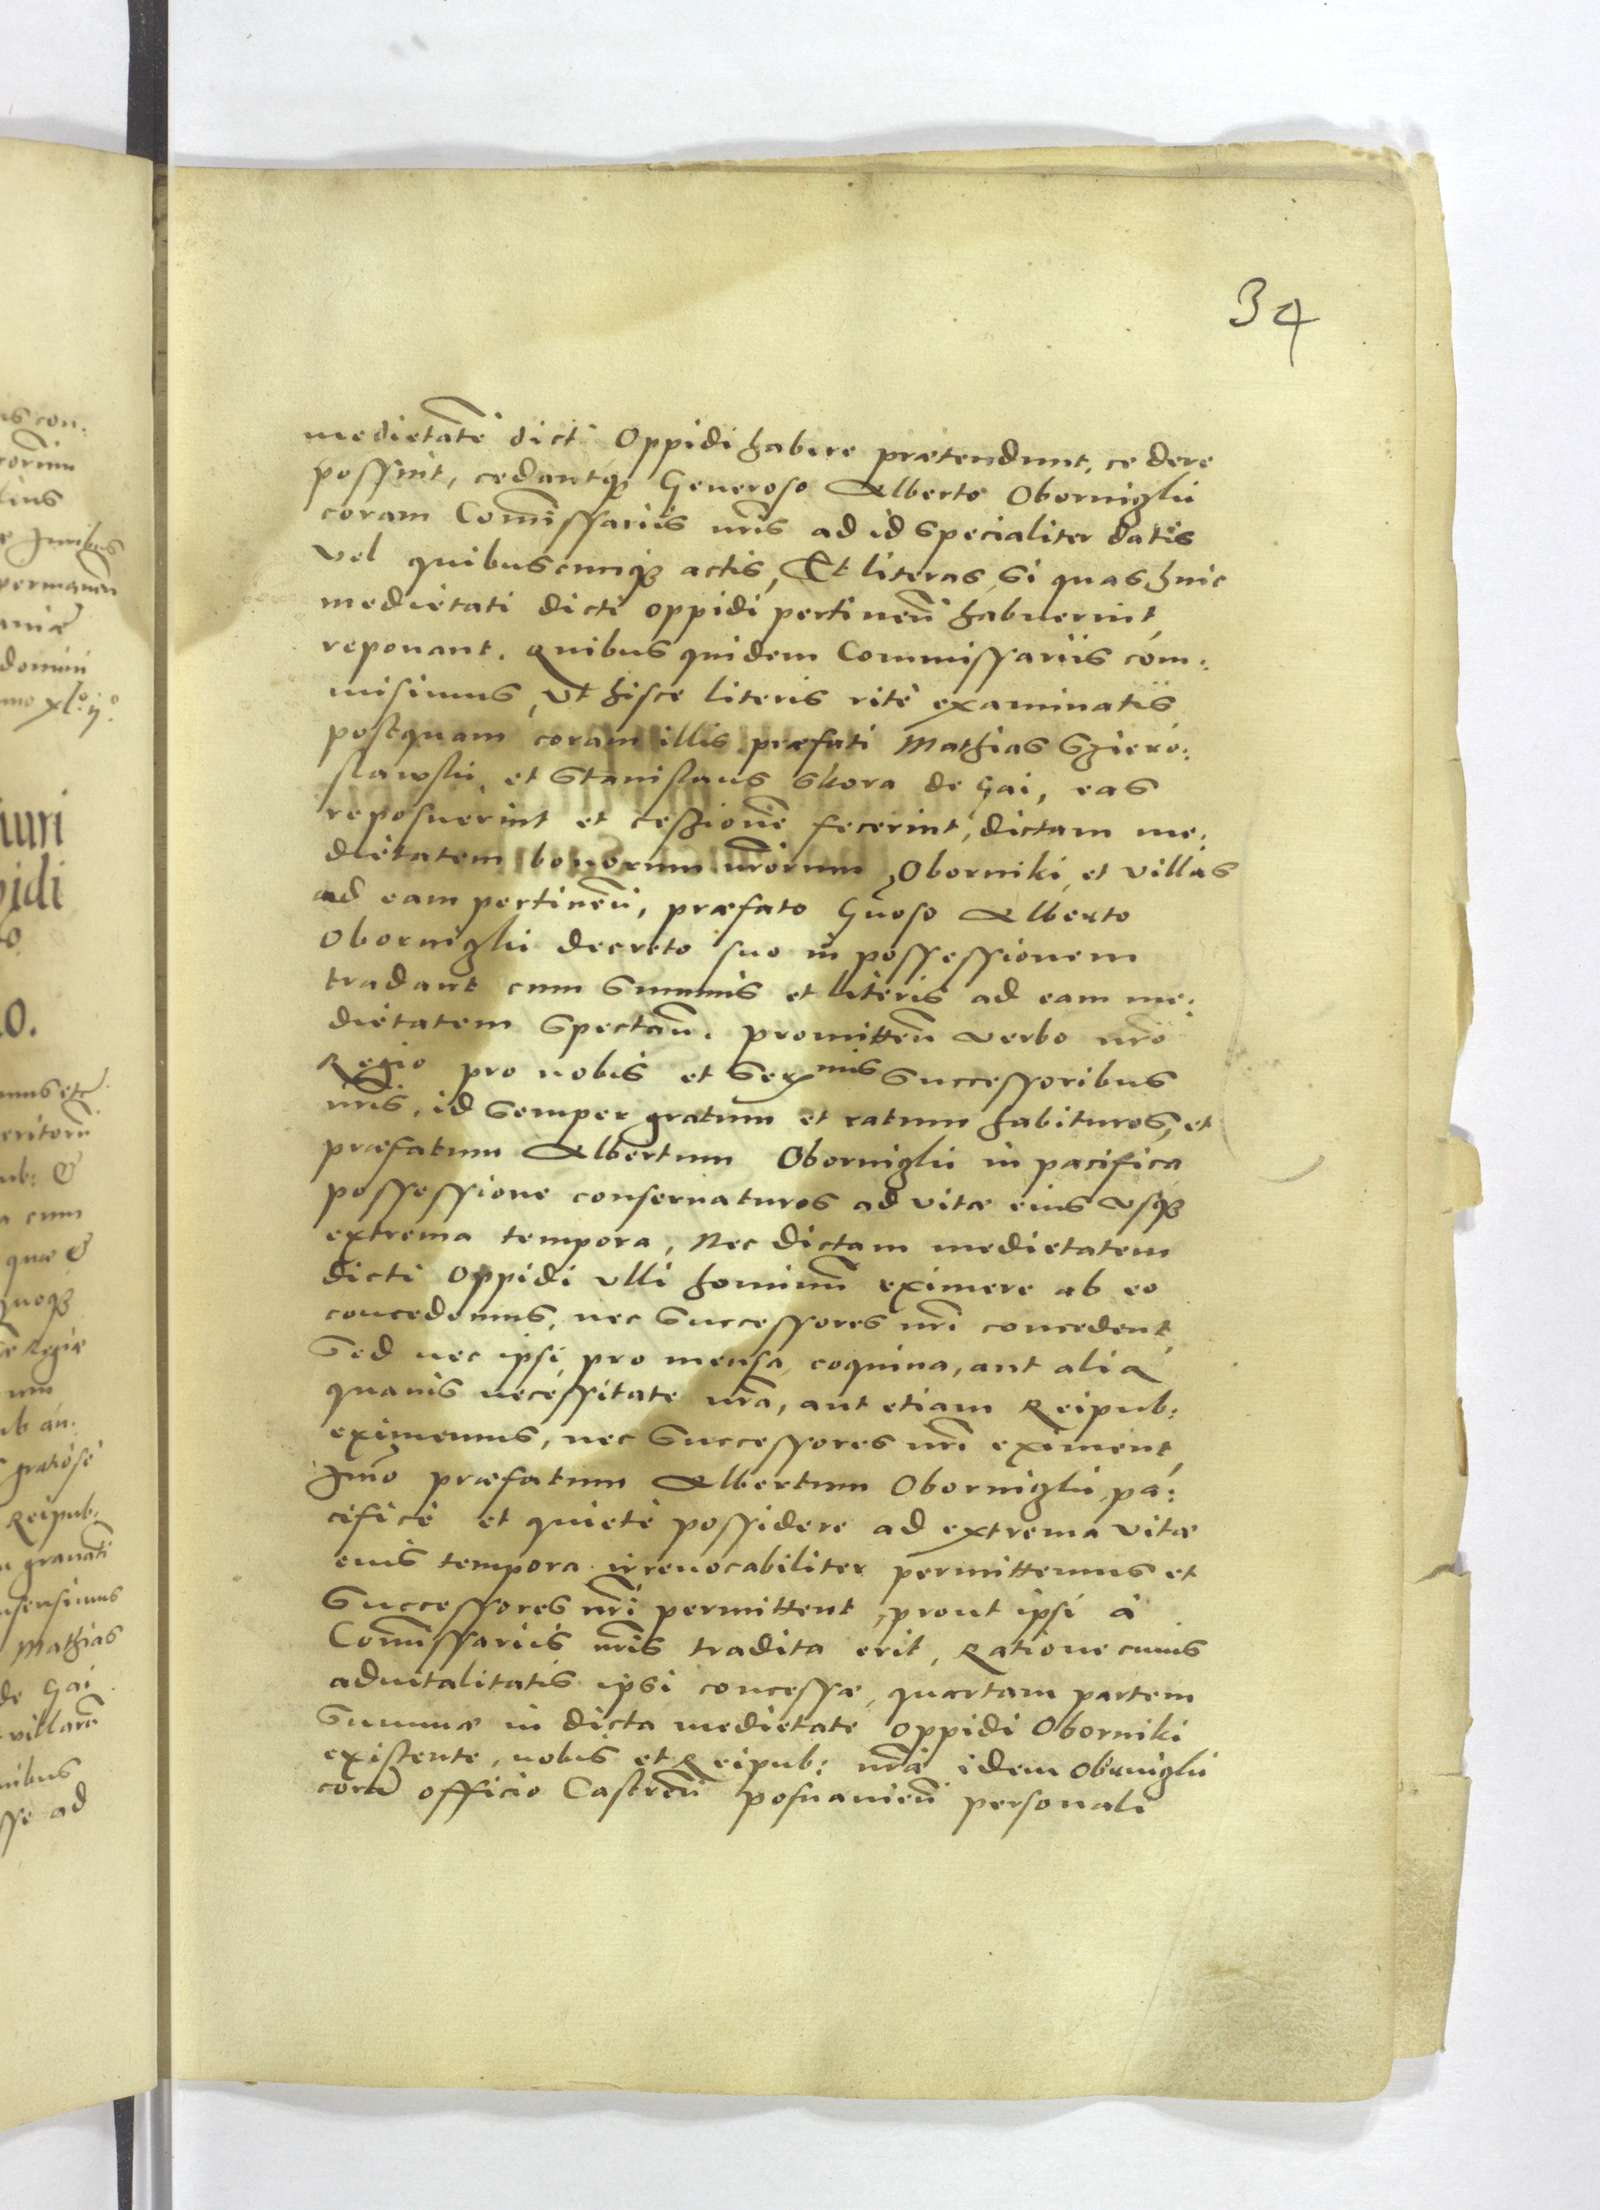 34
medietatē dicti Oppidi habere prætendunt, cedere
possint, cedantq3 Generoso Alberto Obornigkii
coram Com̄issariis nr̄is ad id specialiter datis
vel quibuscunq3 actis, Et literas si quas huic
medietati dicti oppidi pertinen̄ habuerint,
reponant. Quibus quidem Commissariis com:
misimus, ut hisce literis ritè examinatis
postquam coram illis præfati Mathias
slawskii, et Stanislaus Skora de Gai, eas
reposuerint et cessionē fecerint, dictam me:
dietatem bonorum nr̄orum Oborniki et villas
ad eam pertinen̄, præfato Gn̄oso Alberto
Obornigkii decreto suo in possessionem
tradant cum summis et literis ad eam me:
dietatem spectan̄. promitten̄ verbo nr̄o
Regio pro nobis et Ser mis Successoribus
nr̄is, id semper gratum et ratum habituros, et
præfatum Albertum Obornigkii in pacifica
possessione conservaturos ad vitæ eius usq3
extrema tempora, Nec dictam medietatem
dicti Oppidi ulli hominum̄ eximere ab eo
concedemus, nec Successores nr̄i concedent,
Sed nec ipsi pro mensa, coquina, aut alia
quavis necessitate nr̄a, aut etiam Reipub:
eximemus, nec Successores nr̄i eximent,
Imò præfatum Albertum Obornigkii pa:
cificè et quietè possidere ad extrema vitæ
eius tempora irrevocabiliter permittemus et
Successores nr̄i permittent, prout ipsi à
Com̄issariis nr̄is tradita erit, Ratione cuius
advitalitatis ipsi concessæ, quartam partem
Summæ in dicta medietate oppidi Oborniki
existente, nobis et Reipub: nr̄æ idem Obornigkii
corā officio Castren̄ Posnanien̄ personali